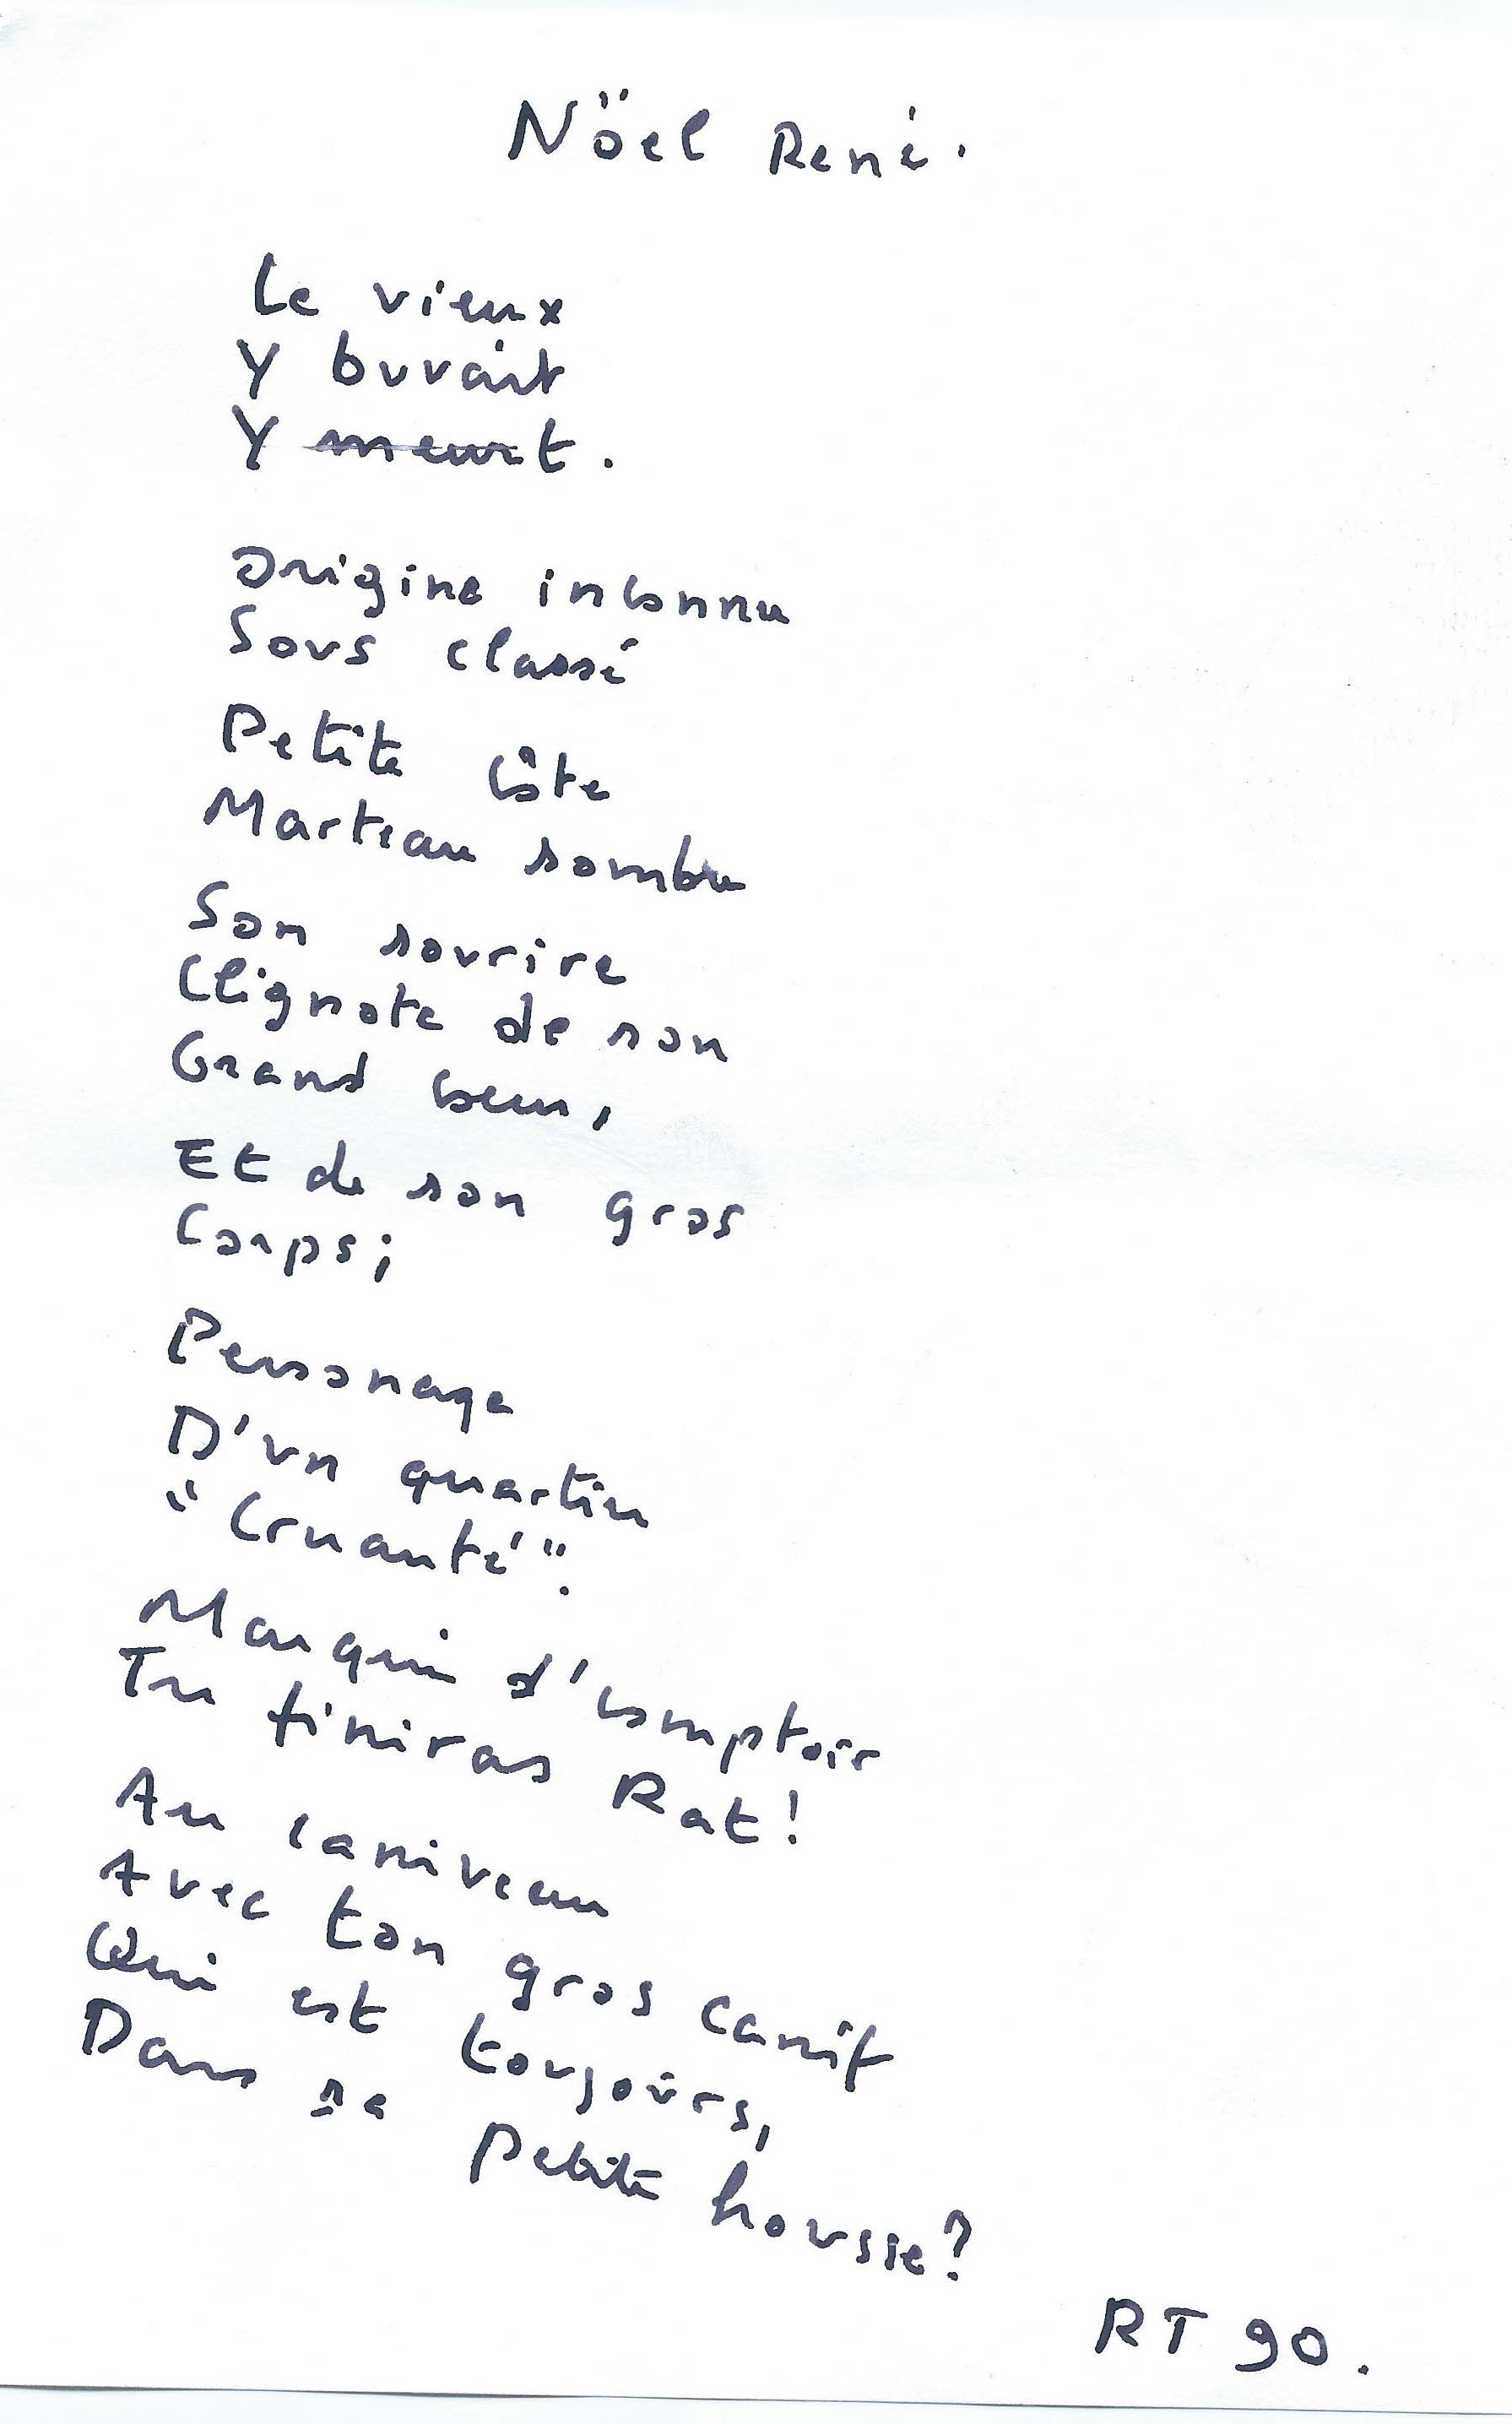 Nöel René.
Le vieux
Y buvait
Y meurt.
Origine inconnu
Sous classé
Petite côte
Marteau sombre
Son sourire
Clignote de son
Grand coeur,
Et de son gros
Corps;
Personage
D'un quartier
"Cruauté".
Marquis d'comptoir
Tu finiras Rat!
Au caniveau
Avec ton gros canif
Qui est toujours,
Dans sa petite housse?
RT 90.